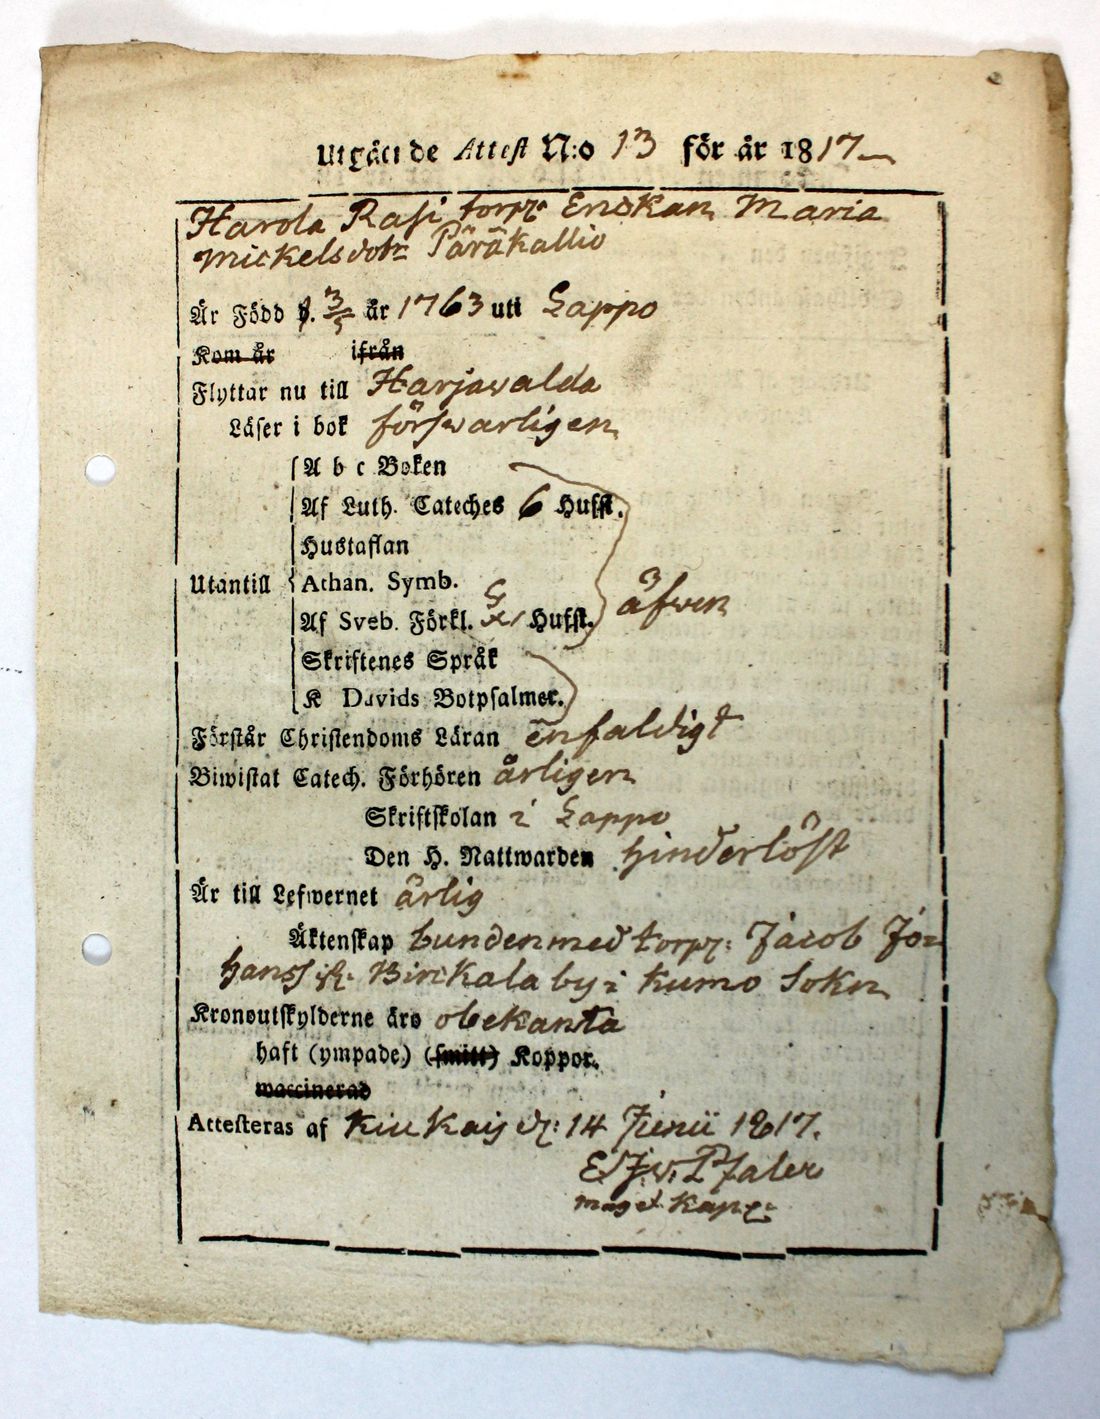 Utgående Attest N:o 13 för år 1817
Harola Rasi torp: Enckan Maria
Mickelsdotr Päräkallio
Är Född d. 3/5 år 1763 uti Lappo
Kom år ifrån
Flyttar nu till Harjawalda
Läser i bok förswarligen
A b c Boken
Af Luth. Cateches 6 Hufst.
Hustaflan
Utantill Athan. Symb.
Af Sveb. Förkl. Hufst. äfwen
Skriftenes Språk
K Davids Botpsalmer.
Förstår Christendoms Läran enfaldigt
Biwistat Catech. Förhören årligen
Skriftskolan i Lappo
Den H. Nattwarden hinderlöst
Är till Lefwernet ärlig
Äktenskap bunden med torp: Jacob Jo-
hanss Birckala by i Kumo Sokn
Kronoutskylderne äro obekanta
haft (ympade) (smitt) Koppor.
waccinerad
Attesteras af Kiukais d: 14 Junii 1817.
v. Pfaler